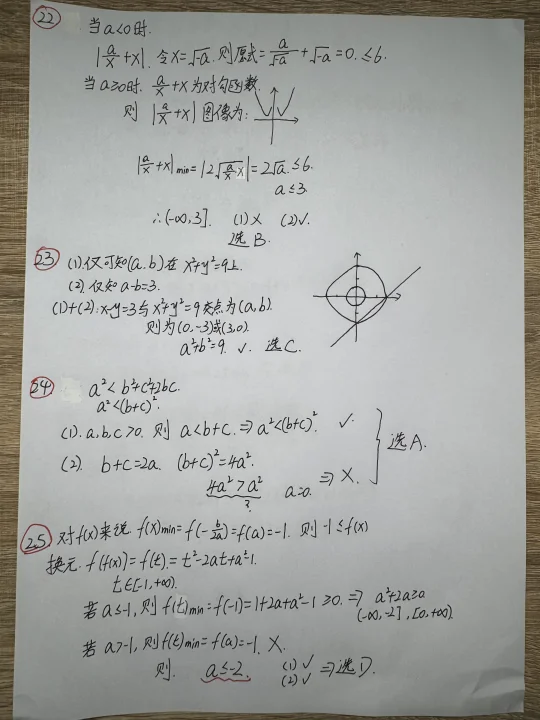 22
当a<0时.
|a/x+x|. 令x=√-a. 则原式=a/√-a+√-a=0. ≤6.
当a≥0时. a/x+x为对勾函数.
则 |a/x+x| 图像为:
|a/x+x|min=|2√a/x·x|=2√a.≤6.
a≤3.
∴(-∞,3]. (1)× (2)✓.
选B.
23
(1).仅可知(a.b)在x²+y²=9上.
(2).仅知a-b=3.
(1)+(2):x-y=3与x²+y²=9交点为(a,b).
则为(0,-3)或(3,0).
a²+b²=9. ✓. 选C.
24
a²<b²+c²+2bc.
a²<(b+c)².
(1).a,b,c>0. 则 a<b+c.⇒a²<(b+c)². ✓.
(2). b+c=2a. (b+c)²=4a². ⇒ ×.
4a²>a² a=0.
?
选A.
25
对f(x)来说. f(x)min=f(-b/2a)=f(a)=-1. 则-1≤f(x)
换元. f(f(x))=f(t).=t²-2at+a²-1.
t∈[-1,+∞).
若a≤-1,则f(t)min=f(-1)=1+2a+a²-1≥0.⇒ a²+2a≥0
(-∞,-2],[0,+∞).
若a>-1,则f(t)min=f(a)=-1. ×.
则. a≤-2. (1)✓ (2)✓ ⇒选D.